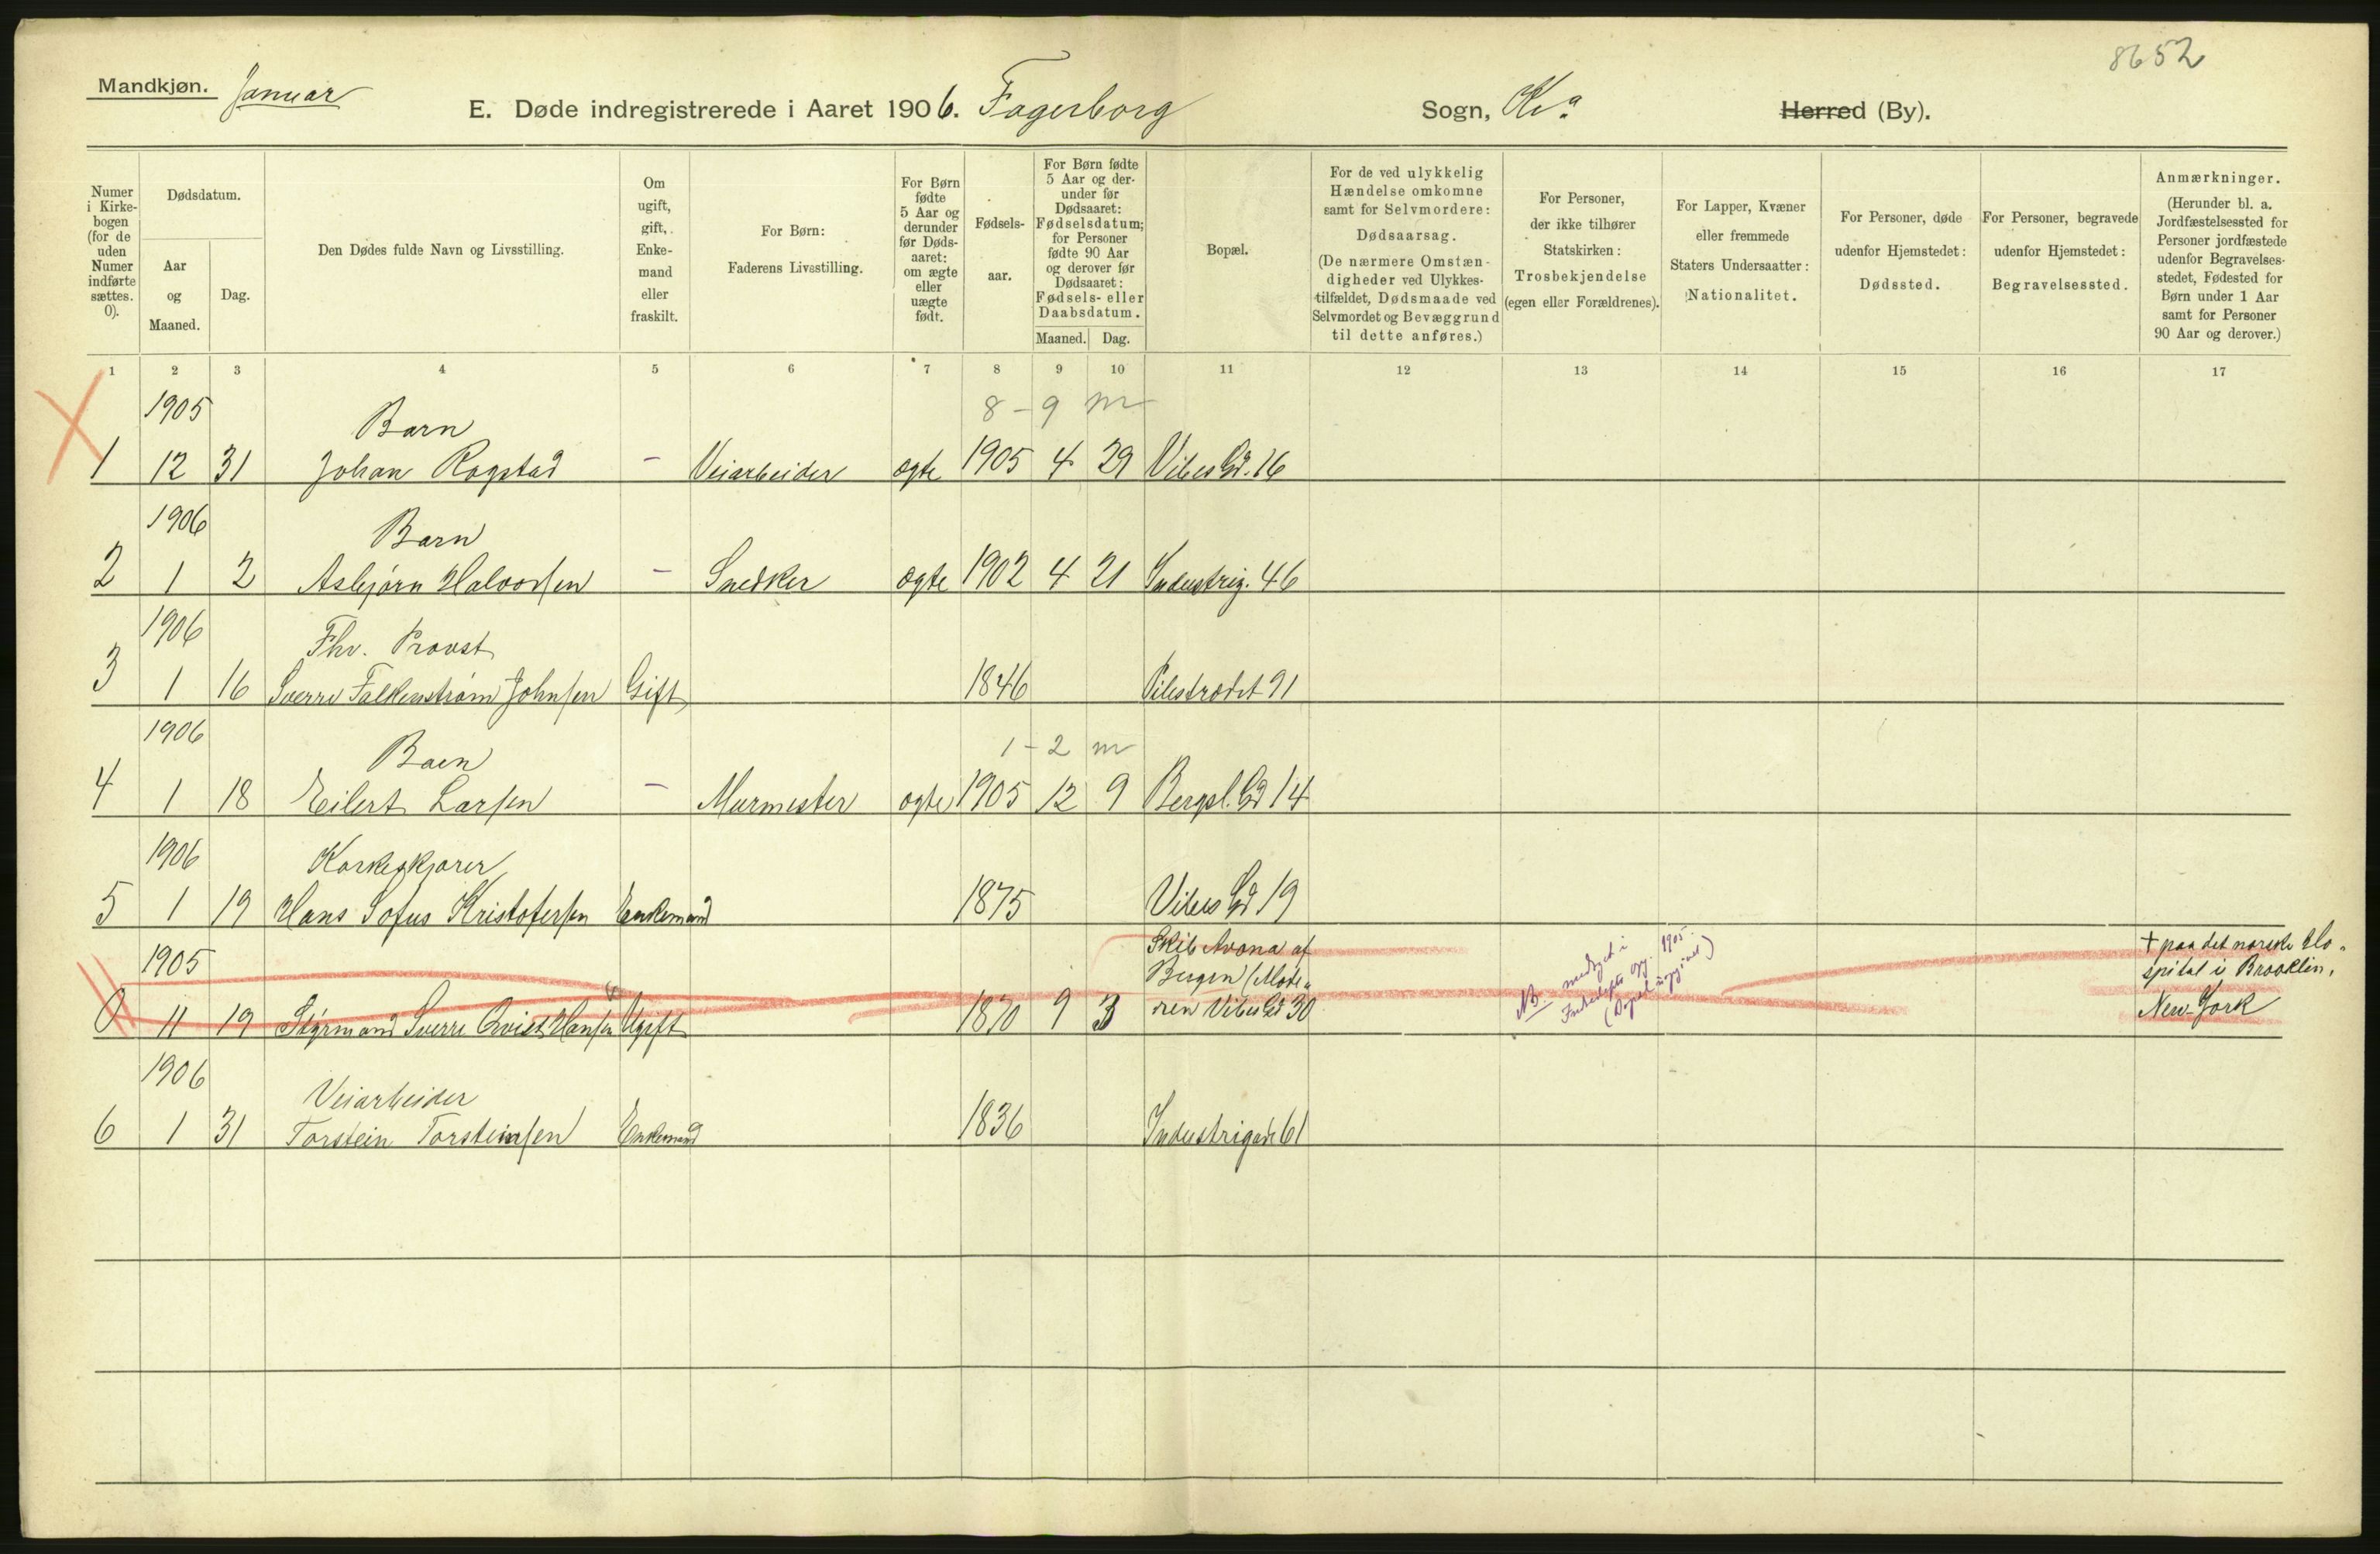 8652
Mandkjøn. Januar
E. Døde indregistrerede i Aaret 1906. Fagerborg Sogn, Kr.a Herred (By).
Numer i Kirke-bogen (for de uden Numer indførte sættes. 0).
Dødsdatum.
Aar og Maaned.
Dag.
Den Dødes fulde Navn og Livsstilling.
Om ugift, gift, Enke-mand eller fraskilt.
For Børn: Faderens Livsstilling.
For Børn fødte 5 Aar og derunder før Døds-aaret: om ægte eller uægte født.
Fødsels-aar.
For Børn fødte 5 Aar og der-under før Dødsaaret: Fødselsdatum; for Personer fødte 90 Aar og derover før Dødsaaret: Fødsels- eller Daabsdatum.
Maaned. Dag.
Bopæl.
For de ved ulykkelig Hændelse omkomne samt for Selvmordere: Dødsaarsag. (De nærmere Omstæn-digheder ved Ulykkes-tilfældet, Dødsmaade ved Selvmordet og Bevæggrund til dette anføres.)
For Personer, der ikke tilhører Statskirken: Trosbekjendelse (egen eller Forældrenes).
For Lapper, Kvæner eller fremmede Staters Undersaatter: Nationalitet.
For Personer, døde udenfor Hjemstedet: Dødssted.
For Personer, begravede udenfor Hjemstedet: Begravelsessted.
Anmærkninger. (Herunder bl. a. Jordfæstelsessted for Personer jordfæstede udenfor Begravelses-stedet, Fødested for Børn under 1 Aar samt for Personer 90 Aar og derover.)
1 2 3 4 5 6 7 8 9 10 11 12 13 14 15 16 17
1905 Barn 8-9 m
1 12 31 Johan Rogstad - Veiarbeider ægte 1905 4 29 Vibes Gd. 16
1906 Barn
2 1 2 Asbjørn Halvorsen - Snedker ægte 1902 4 21 Industrig. 46
1906 Fhv. Provst
3 1 16 Sverre Falkenstrøm Johnsen Gift 1846 Pilestrædet 91
1906 Barn 1-2 m
4 1 18 Eilert Larsen - Murmester ægte 1905 12 9 Bergsl. Gd 14
1906 Korkeskjærer
5 1 19 Hans Sofus Kristofersen Enkemand 1875 Vibes Gd 19
1905 Skib Avona af Bergen (Mode-
0 11 19 Styrmand Sverre Qvist Hansen Ugift 1870 9 3 ren Vibes Gd 30
NB medtaget i
opg. 1905.
† paa det norske Ho-
spital i Brooklin,
New-York
1906 Veiarbeider
6 1 31 Torstein Torsteinsen Enkemand 1836 Industrigade 61